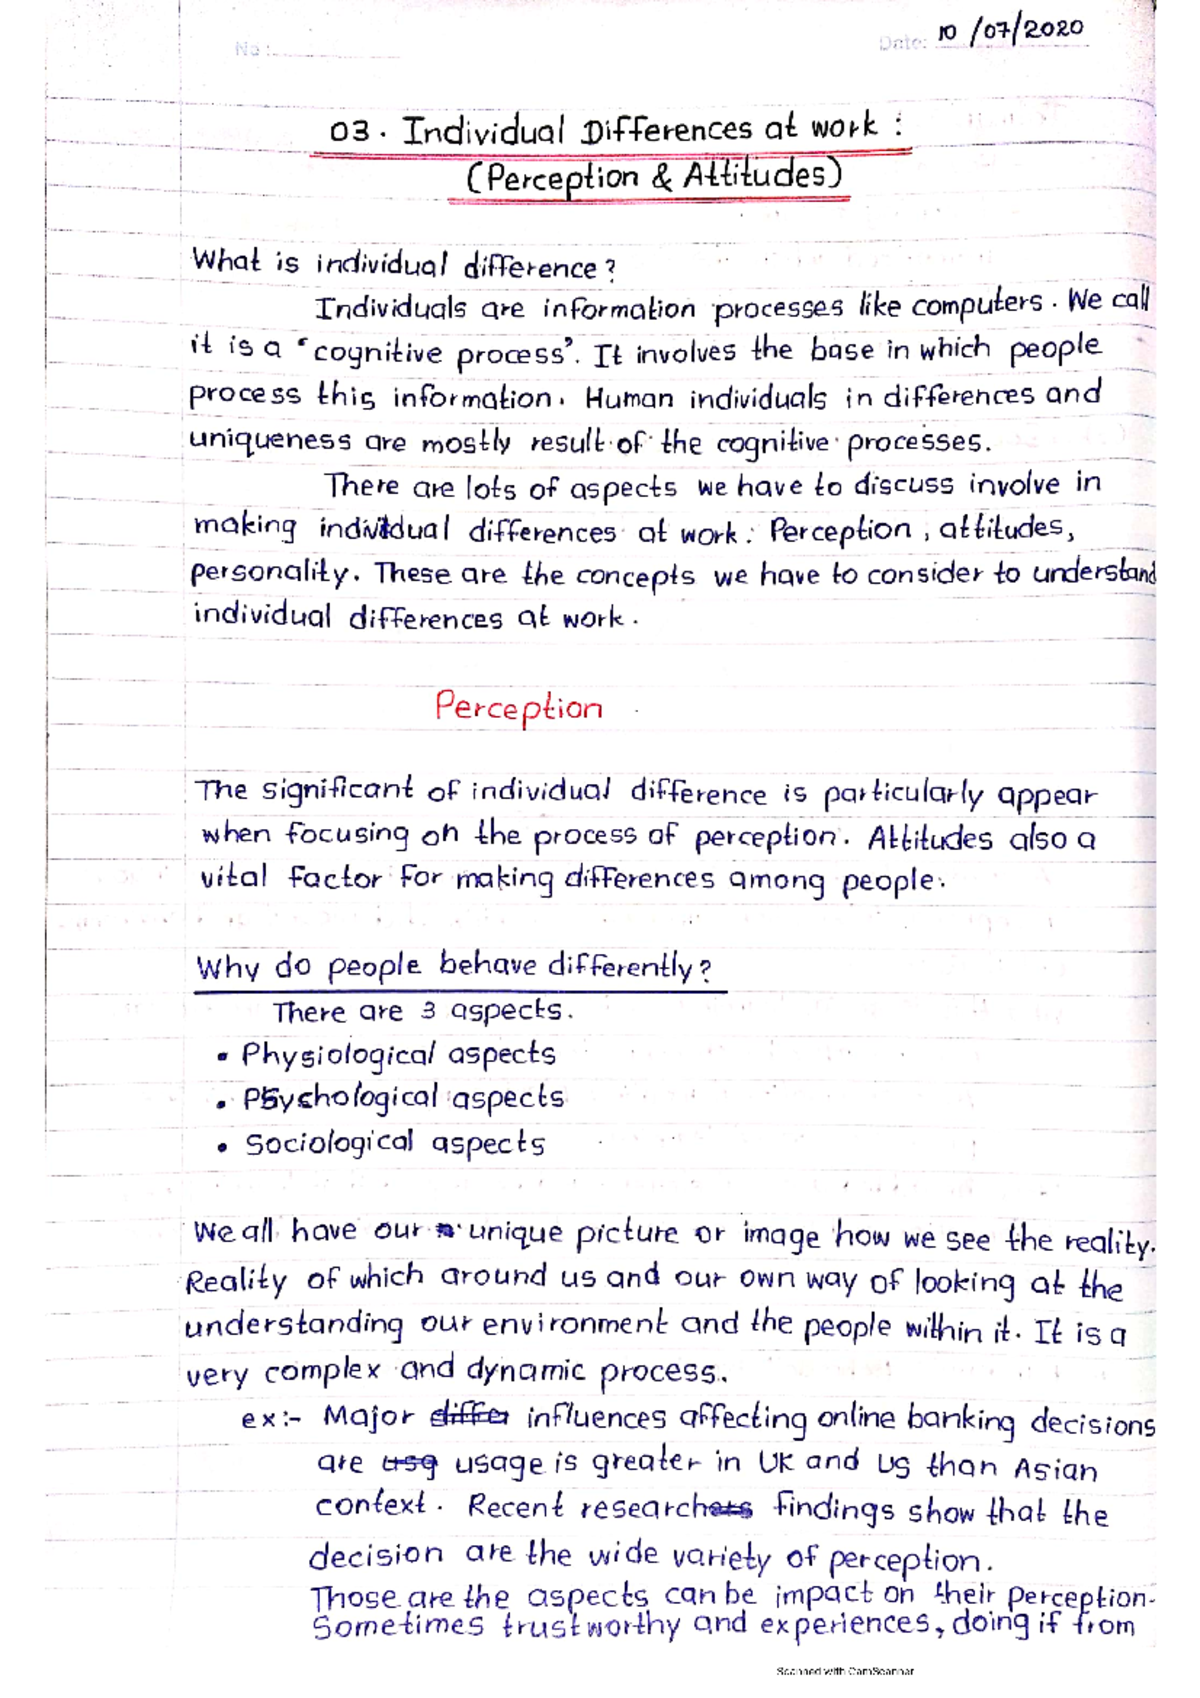 No :
Date: 10/07/2020
03. Individual Differences at work :
(Perception & Attitudes)
What is individual difference?
Individuals are information processes like computers. We call
it is a ‘cognitive process’. It involves the base in which people
process this information. Human individuals in differences and
uniqueness are mostly result of the cognitive processes.
There are lots of aspects we have to discuss involve in
making individual differences at work: Perception, attitudes,
personality. These are the concepts we have to consider to understand
individual differences at work.
Perception
The significant of individual difference is particularly appear
when focusing on the process of perception. Attitudes also a
vital factor for making differences among people.
Why do people behave differently?
There are 3 aspects.
• Physiological aspects
• Psychological aspects
• Sociological aspects
We all have our unique picture or image how we see the reality.
Reality of which around us and our own way of looking at the
understanding our environment and the people within it. It is a
very complex and dynamic process.
ex:- Major differ influences affecting online banking decisions
are usg usage is greater in UK and US than Asian
context. Recent researchers findings show that the
decision are the wide variety of perception.
Those are the aspects can be impact on their perception.
Sometimes trustworthy and experiences, doing if from
Scanned with CamScanner